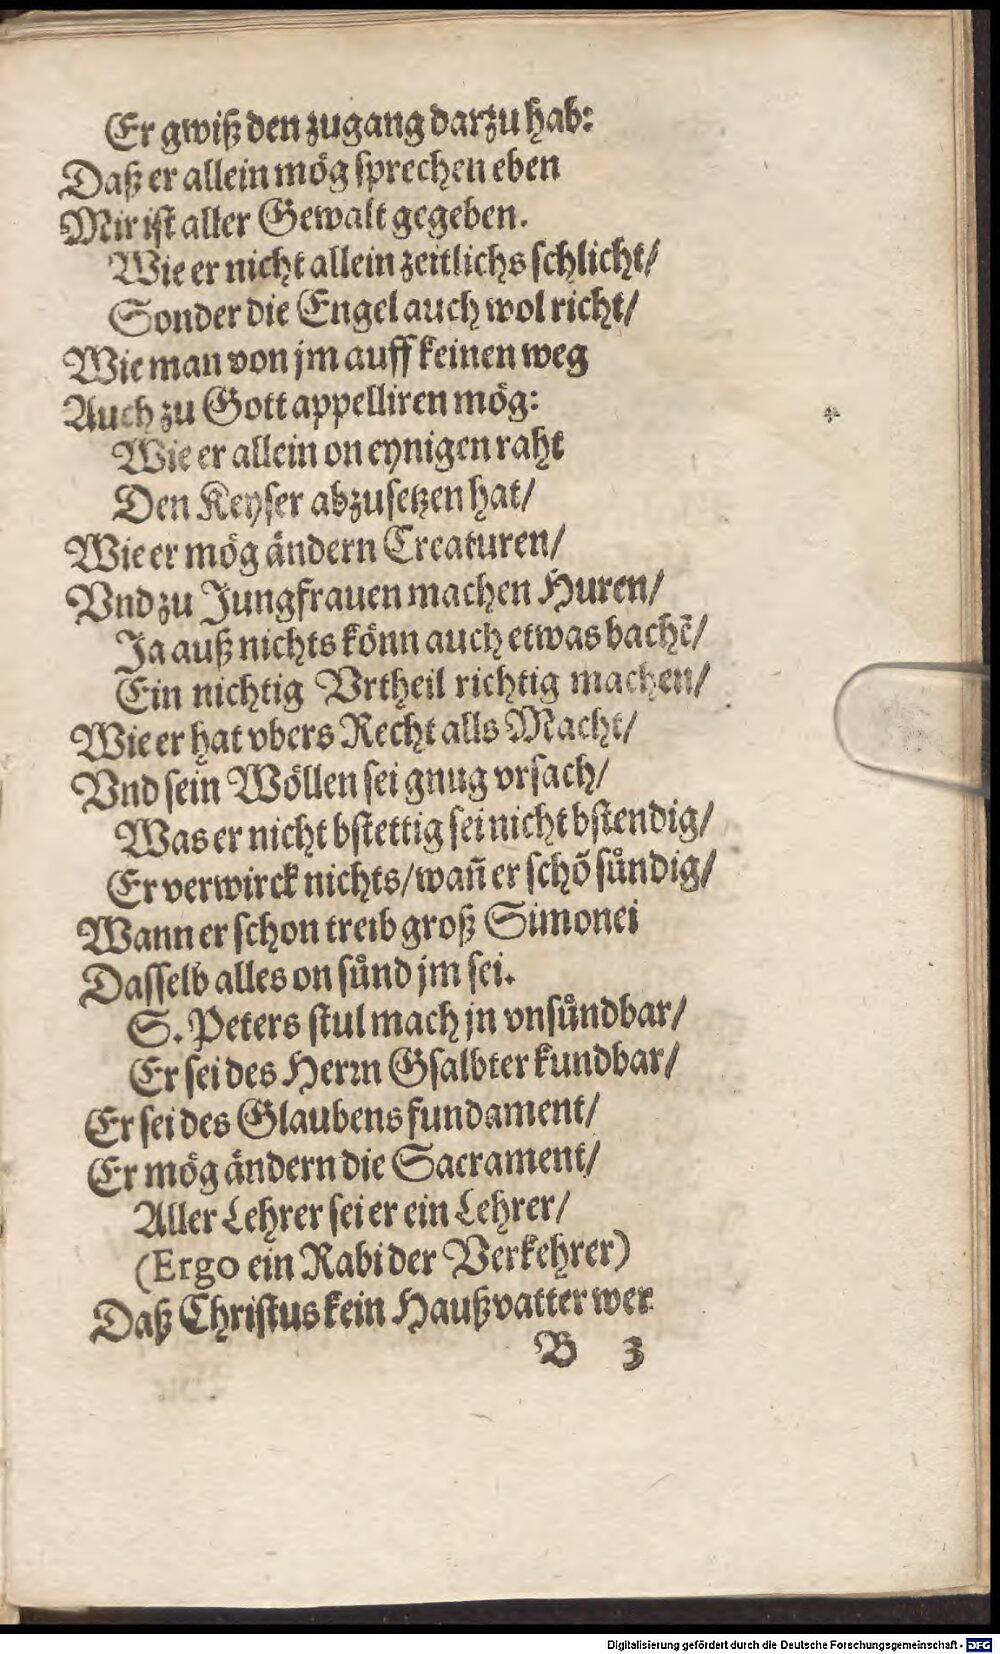 Er gwiß den zugang darzu hab:
Daß er allein mög sprechen eben
Mir ist aller Gewalt gegeben.
Wie er nicht allein zeitlichs schlicht/
Sonder die Engel auch wol richt/
Wie man von jm auff keinen weg
Auch zu Gott appelliren mög:
Wie er allein on eynigen raht
Den Keyser abzusetzen hat/
Wie er mög ändern Creaturen/
Vnd zu Jungfrauen machen Huren/
Ja auß nichts könn auch etwas bachē/
Ein nichtig Vrtheil richtig machen/
Wie er hat vbers Recht alls Macht/
Vnd sein Wöllen sei gnug vrsach/
Was er nicht bstettig sei nicht bstendig/
Er verwirck nichts/wañ er schõ sündig/
Wann er schon treib groß Simonei
Dasselb alles on sünd jm sei.
S. Peters stul mach jn vnsündbar/
Er sei des Herrn Gsalbter kundbar/
Er sei des Glaubens fundament/
Er mög ändern die Sacrament/
Aller Lehrer sei er ein Lehrer/
(Ergo ein Rabi der Verkehrer)
Daß Christus kein Haußvatter wer
B 3
Digitalisierung gefördert durch die Deutsche Forschungsgemeinschaft - DFG